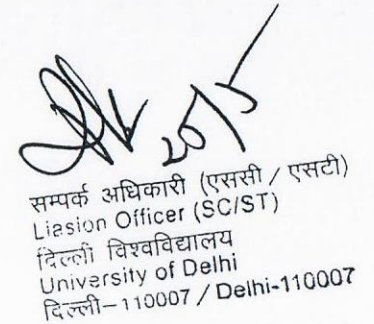 20/5
सम्पर्क अधिकारी (एससी / एसटी)
Liasion Officer (SC/ST)
दिल्ली विश्वविद्यालय
University of Delhi
दिल्ली-110007 / Delhi-110007